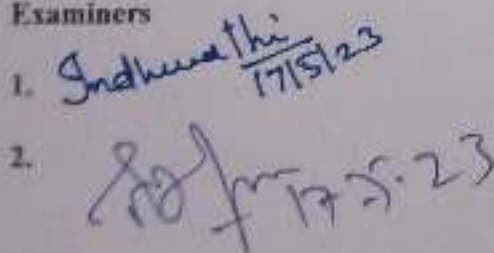 Examiners
1. Indhumathi
17/5/23
2. 17.5.23